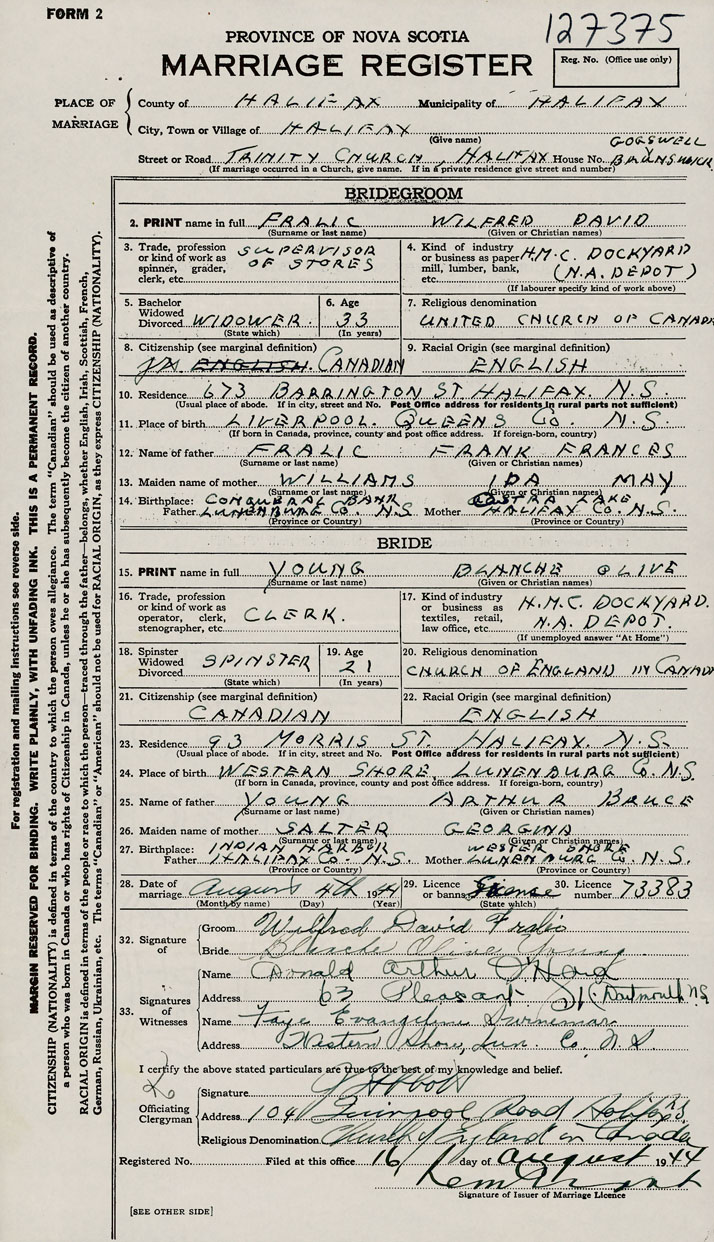 FORM 2
127375
PROVINCE OF NOVA SCOTIA
MARRIAGE REGISTER
Reg. No. (Office use only)
PLACE OF MARRIAGE
County of HALIFAX Municipality of HALIFAX
City, Town or Village of HALIFAX
(Give name)
GOGSWELL
Street or Road TRINITY CHURCH, HALIFAX House No. BRUNSWICK
(If marriage occurred in a Church, give name. If in a private residence give street and number)
BRIDEGROOM
2. PRINT name in full FRALIC WILFRED DAVID
(Surname or last name) (Given or Christian names)
3. Trade, profession or kind of work as spinner, grader, clerk, etc. SUPERVISOR OF STORES
4. Kind of industry or business as paper mill, lumber, bank, etc. H.M.C. DOCKYARD (N.A. DEPOT)
(If labourer specify kind of work above)
5. Bachelor Widowed Divorced WIDOWER.
(State which)
6. Age 33
(In years)
7. Religious denomination
UNITED CHURCH OF CANADA
8. Citizenship (see marginal definition)
ENGLISH. CANADIAN
9. Racial Origin (see marginal definition)
ENGLISH
10. Residence 673 BARRINGTON ST. HALIFAX. N.S.
(Usual place of abode. If in city, street and No. Post Office address for residents in rural parts not sufficient)
11. Place of birth LIVERPOOL. QUEENS Co. N.S.
(If born in Canada, province, county and post office address. If foreign-born, country)
12. Name of father FRALIC FRANK FRANCES
(Surname or last name) (Given or Christian names)
13. Maiden name of mother WILLIAMS IDA MAY
(Surname or last name) (Given or Christian names)
14. Birthplace: Father CONQUERAL BANK LUNENBURG Co. N.S. Mother LAKE HALIFAX Co. N.S.
(Province or Country) (Province or Country)
BRIDE
15. PRINT name in full YOUNG BLANCHE OLIVE
(Surname or last name) (Given or Christian names)
16. Trade, profession or kind of work as operator, clerk, stenographer, etc. CLERK.
17. Kind of industry or business as textiles, retail, law office, etc. H.M.C. DOCKYARD. N.A. DEPOT.
(If unemployed answer "At Home")
18. Spinster Widowed Divorced SPINSTER
(State which)
19. Age 21
(In years)
20. Religious denomination
CHURCH OF ENGLAND IN CANADA
21. Citizenship (see marginal definition)
CANADIAN
22. Racial Origin (see marginal definition)
ENGLISH
23. Residence 93 MORRIS ST. HALIFAX. N.S.
(Usual place of abode. If in city, street and No. Post Office address for residents in rural parts not sufficient)
24. Place of birth WESTERN SHORE, LUNENBURG Co. N.S.
(If born in Canada, province, county and post office address. If foreign-born, country)
25. Name of father YOUNG ARTHUR BRUCE
(Surname or last name) (Given or Christian names)
26. Maiden name of mother SALTER GEORGINA
(Surname or last name) (Given or Christian names)
27. Birthplace: Father INDIAN HARBOR HALIFAX Co. N.S. Mother WESTERN SHORE LUNENBURG Co. N.S.
(Province or Country) (Province or Country)
28. Date of marriage August 4th 1944
(Month by name) (Day) (Year)
29. Licence or banns License
(State which)
30. Licence number 73383
32. Signature of
Groom Wilfred David Fralic
Bride Blanche Olive Young
33. Signatures of Witnesses
Name Donald Arthur
Address 63 Pleasant St. Dartmouth N.S.
Name Faye Evangeline
Address Western Shore, Lun. Co. N.S.
I certify the above stated particulars are true to the best of my knowledge and belief.
Officiating Clergyman
Signature Abbott
Address 104 Quinpool Road Halifax N.S.
Religious Denomination Church of England in Canada
Registered No. Filed at this office 16 day of August 1944
Signature of Issuer of Marriage Licence
[SEE OTHER SIDE]
For registration and mailing instructions see reverse side.
MARGIN RESERVED FOR BINDING. WRITE PLAINLY, WITH UNFADING INK. THIS IS A PERMANENT RECORD.
CITIZENSHIP (NATIONALITY) is defined in terms of the country to which the person owes allegiance. The term "Canadian" should be used as descriptive of
a person who was born in Canada or who has rights of Citizenship in Canada, unless he or she has subsequently become the citizen of another country.
RACIAL ORIGIN is defined in terms of the people or race to which the person—traced through the father—belongs, whether English, Irish, Scottish, French,
German, Russian, Ukrainian, etc. The terms "Canadian" or "American" should not be used for RACIAL ORIGIN, as they express CITIZENSHIP (NATIONALITY).